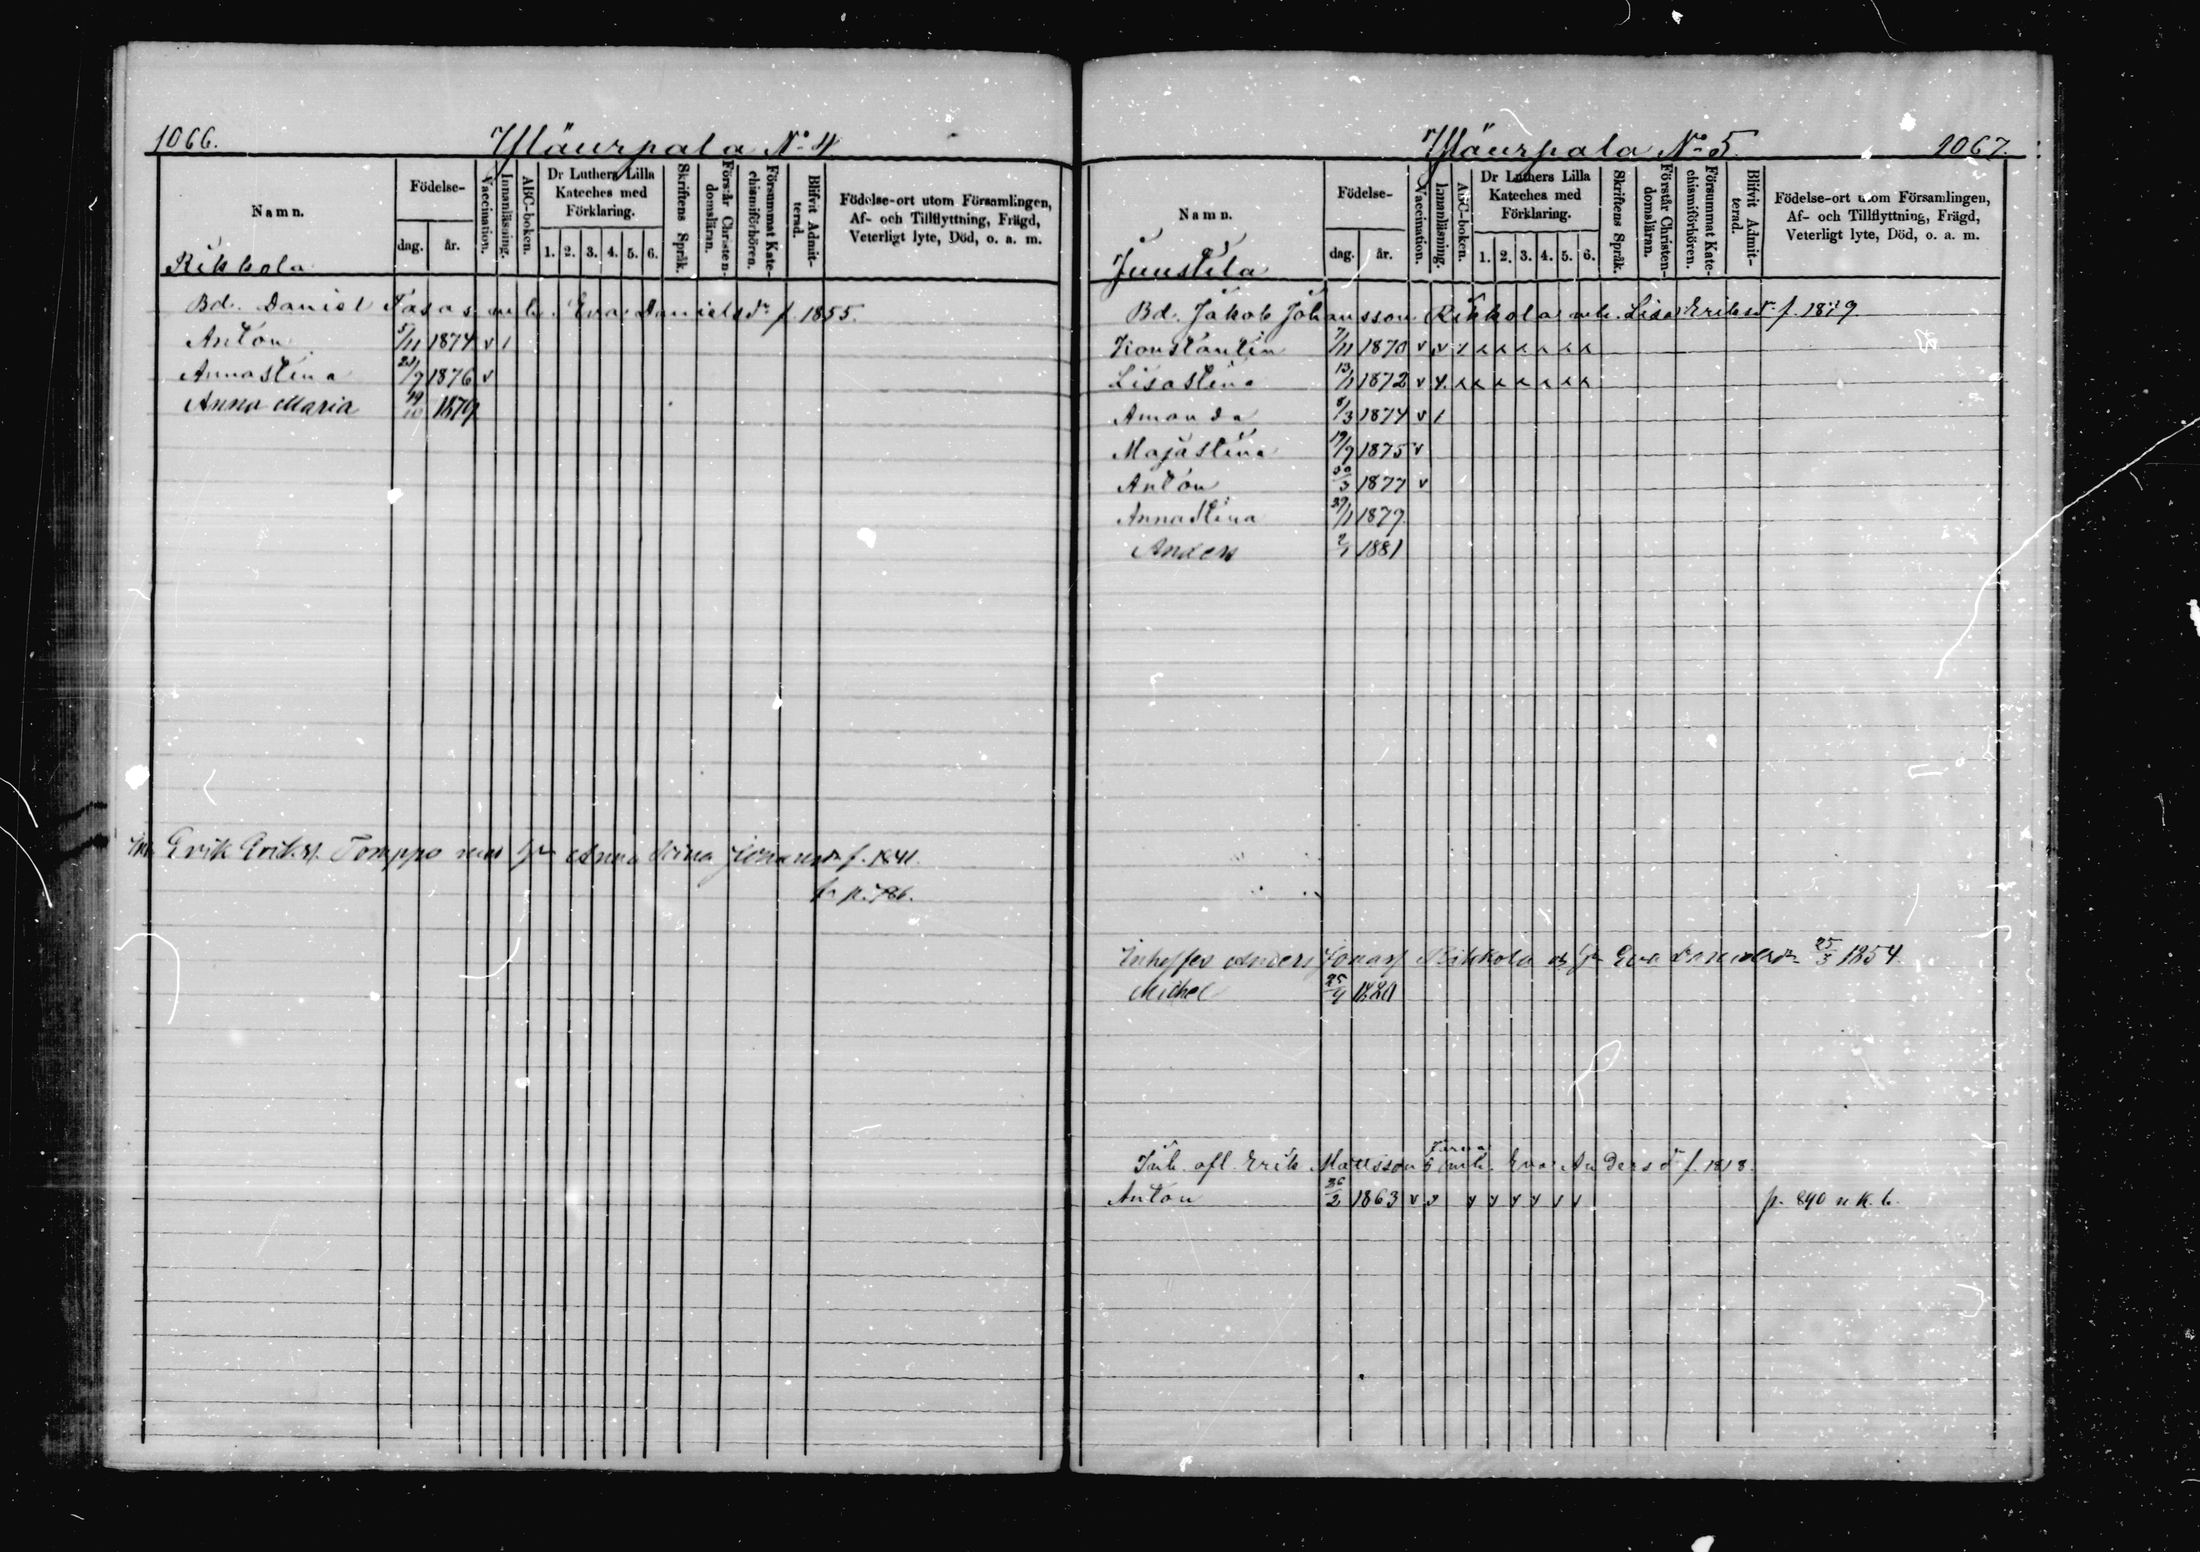 1066.
Yläurpala No 4
Namn.
Födelse-
dag.
år.
Vaccination.
Innanläsning.
ABC-boken.
Dr Luthers Lilla
Kateches med
Förklaring.
1. 2. 3. 4. 5. 6.
Skriftens Språk.
Förstår Christendomsläran.
Försummat Katechismiförhören.
Blifvit Admitterad.
Födelse-ort utom Församlingen,
Af- och Tillflyttning, Frägd,
Veterligt lyte, Död, o. a. m.
Rikkola
Bd. Daniel Tasas m. h. Eva Danielsdr f. 1855.
Anton 5/11 1874 v 1
Annastina 23/7 1876 v
Anna Maria 19/10 1879
Erik Eriks. Tomppo med h Anna Stina f. 1841.
fr p. 786.
Yläurpala No 5.
1067.
Namn.
Födelse-
dag.
år.
Vaccination.
Innanläsning.
ABC-boken.
Dr Luthers Lilla
Kateches med
Förklaring.
1. 2. 3. 4. 5. 6.
Skriftens Språk.
Förstår Christendomsläran.
Försummat Katechismiförhören.
Blifvit Admitterad.
Födelse-ort utom Församlingen,
Af- och Tillflyttning, Frägd,
Veterligt lyte, Död, o. a. m.
Juustila
Bd. Jakob Johansson Rikkola mh. Lisa Eriksdr f.
Konstantin 7/11 1870 v v x x x x x x x
Lisastina 13/11 1872 v x x x x x x x x
Amanda 8/3 1874 v 1
Majastina 19/9 1875 v
Anton 30/3 1877 v
Annastina 1879.
Anders 2/1 1881
Inhyses Anders Rikkola Eva 25/3 1854
Michel 25/4 1880
Inh. afl. Erik Mattsson Tarvas mh. Eva Andersdr f. 1818.
Anton 26/2 1863 v v v v v v v v p. 890 n K. b.